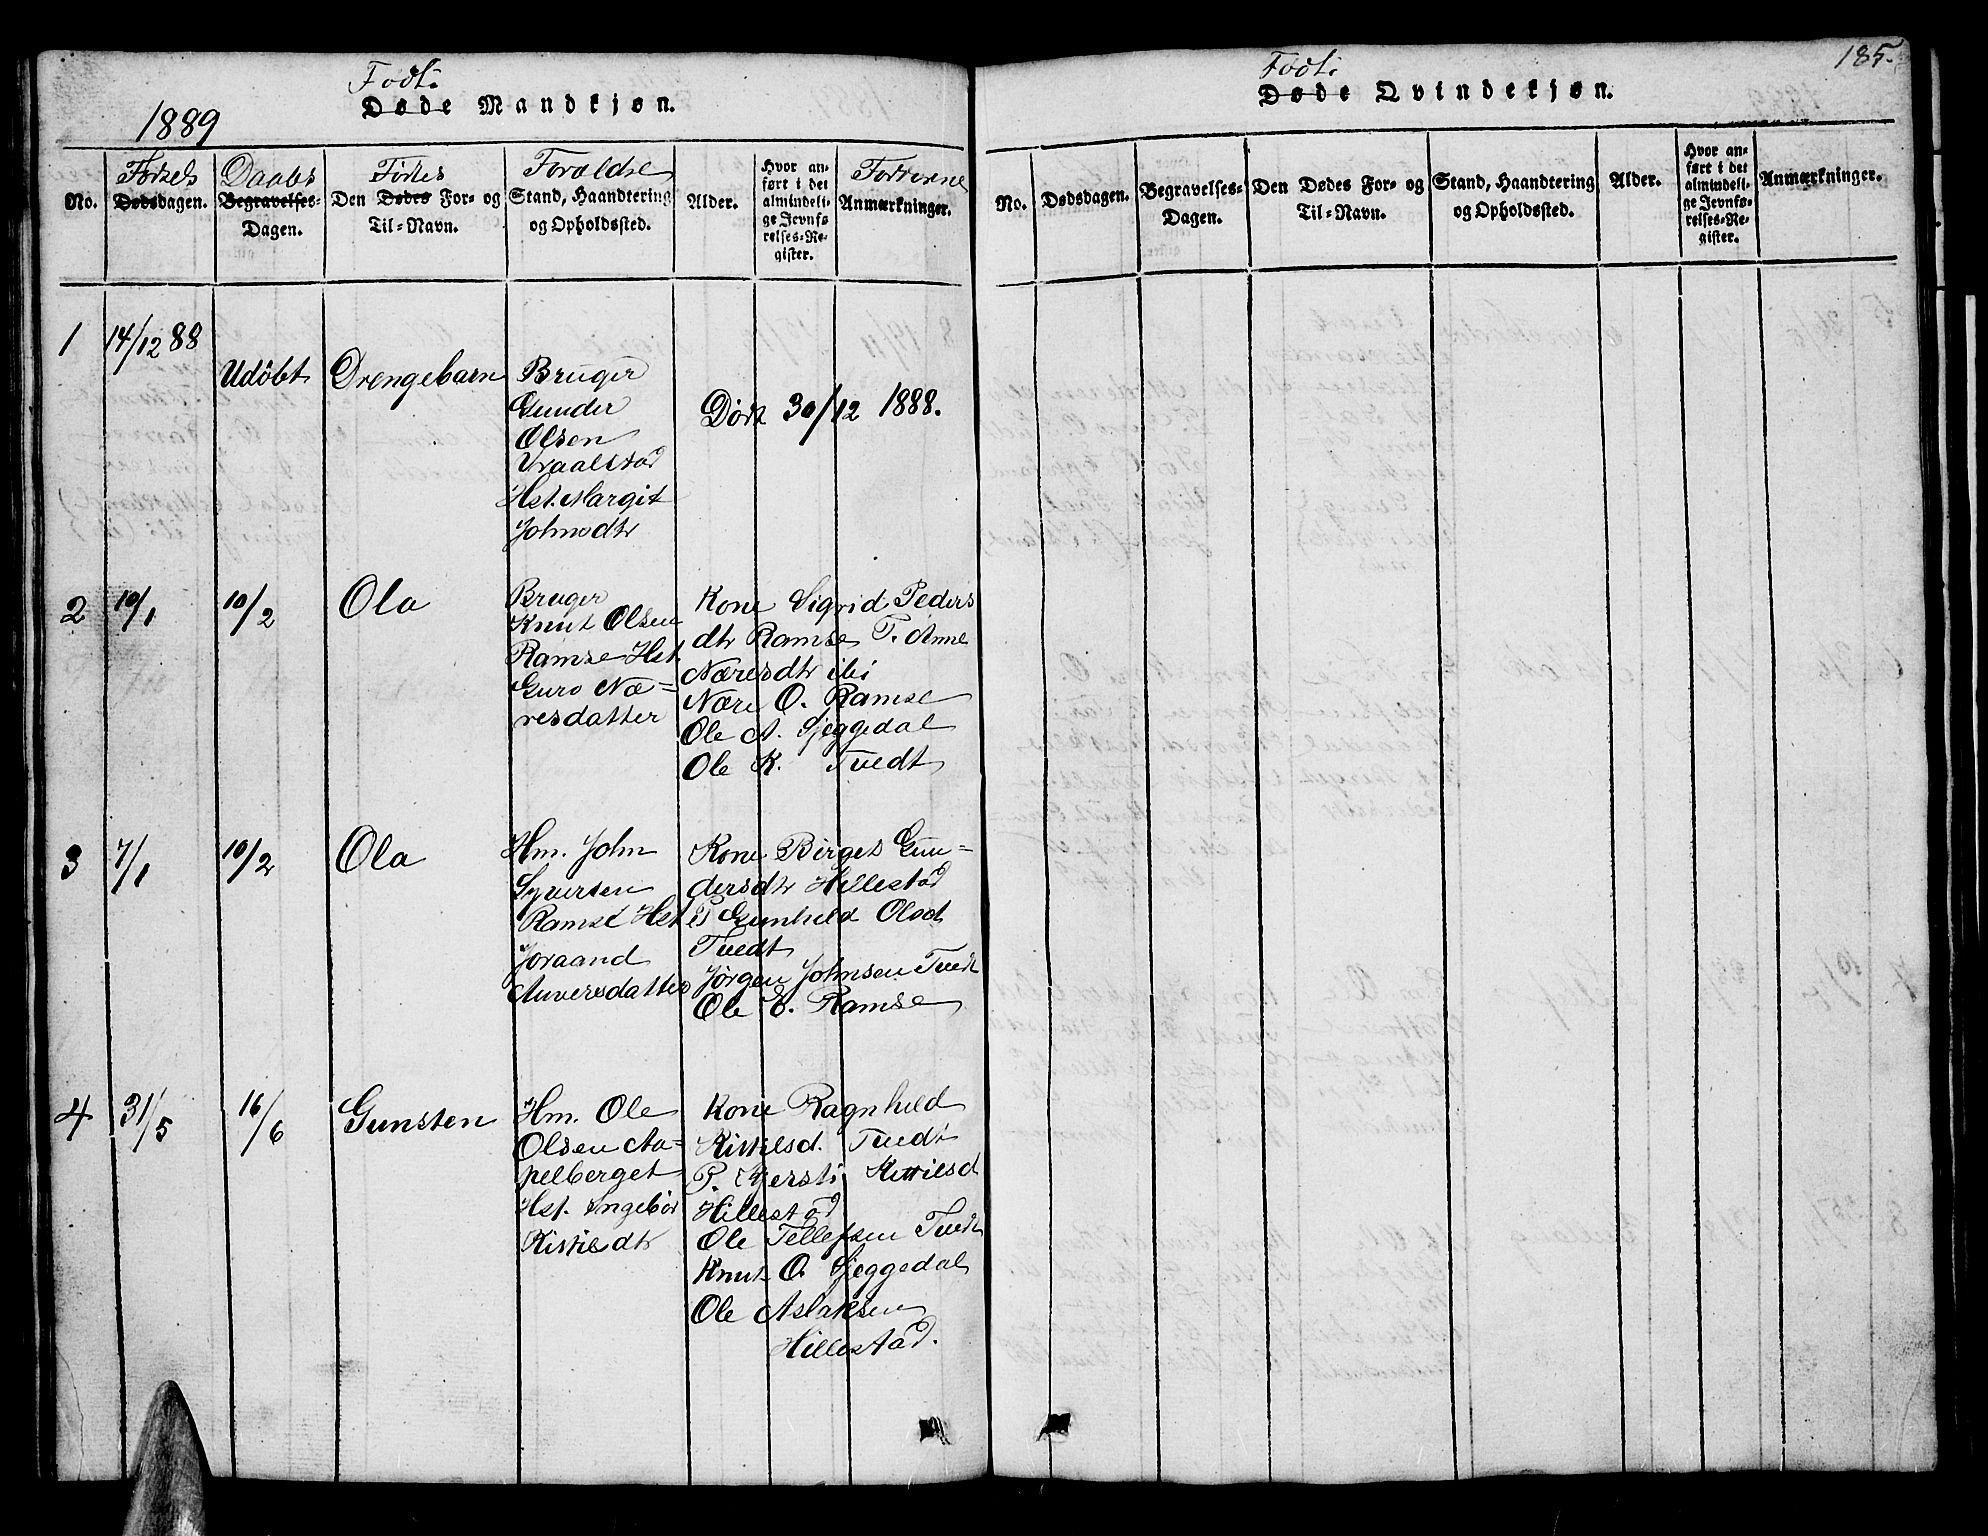 Født.
Døde Mandkjøn.
1889
No.
Fødsels
Dødsdagen.
Daabs
Begravelses-
Dagen.
Fødtes
Den Dødes For- og
Til-Navn.
Forældre
Stand, Haandtering
og Opholdssted.
Alder.
Hvor an-
ført i det
almindeli-
ge Jevnfø-
relses-Re-
gister.
Fadderne
Anmærkninger.
1 14/12 88
Udöbt Drengebarn
Bruger
Gunder
Olsen
Vraalstad
Hst. Margit
Johnsdtr
Død 30/12 1888.
2 10/1 10/2 Ola
Bruger
Knut Olsen
Ramse Hst.
Guro Næ-
resdatter
Kone Sigrid Peders
dtr Ramse P. Anne
Næresdtr ibi
Nære O. Ramse
Ole A. Sjeggedal
Ole K. Tvedt
3 7/1 10/2 Ola
Hm. John
Syversen
Ramse Hst
Joraand
Auversdatter
Kone Birget Gun-
dersdtr Hillestad
P Gunhild Olsd
Tvedt
Jørgen Johnsen Tvedt
Ole E. Ramse
4 31/5 16/6 Gunsten
Hm. Ole
Olsen Aa-
pelberget
Hst. Ingebor
Kittilsdtr
Kone Ragnhild
Kittilsd. Tvedt
P. Kjersti Kittilsd
Hillestad
Ole Tellefsen Tvedt
Knut O. Sjeggedal
Ole Aslaksen
Hillestad.
185.
Født.
Døde Qvindekjøn.
No.
Dødsdagen.
Begravelses-
Dagen.
Den Dødes For- og
Til-Navn.
Stand, Haandtering
og Opholdssted.
Alder.
Hvor an-
ført i det
almindeli-
ge Jevnfø-
relses-Re-
gister.
Anmærkninger.